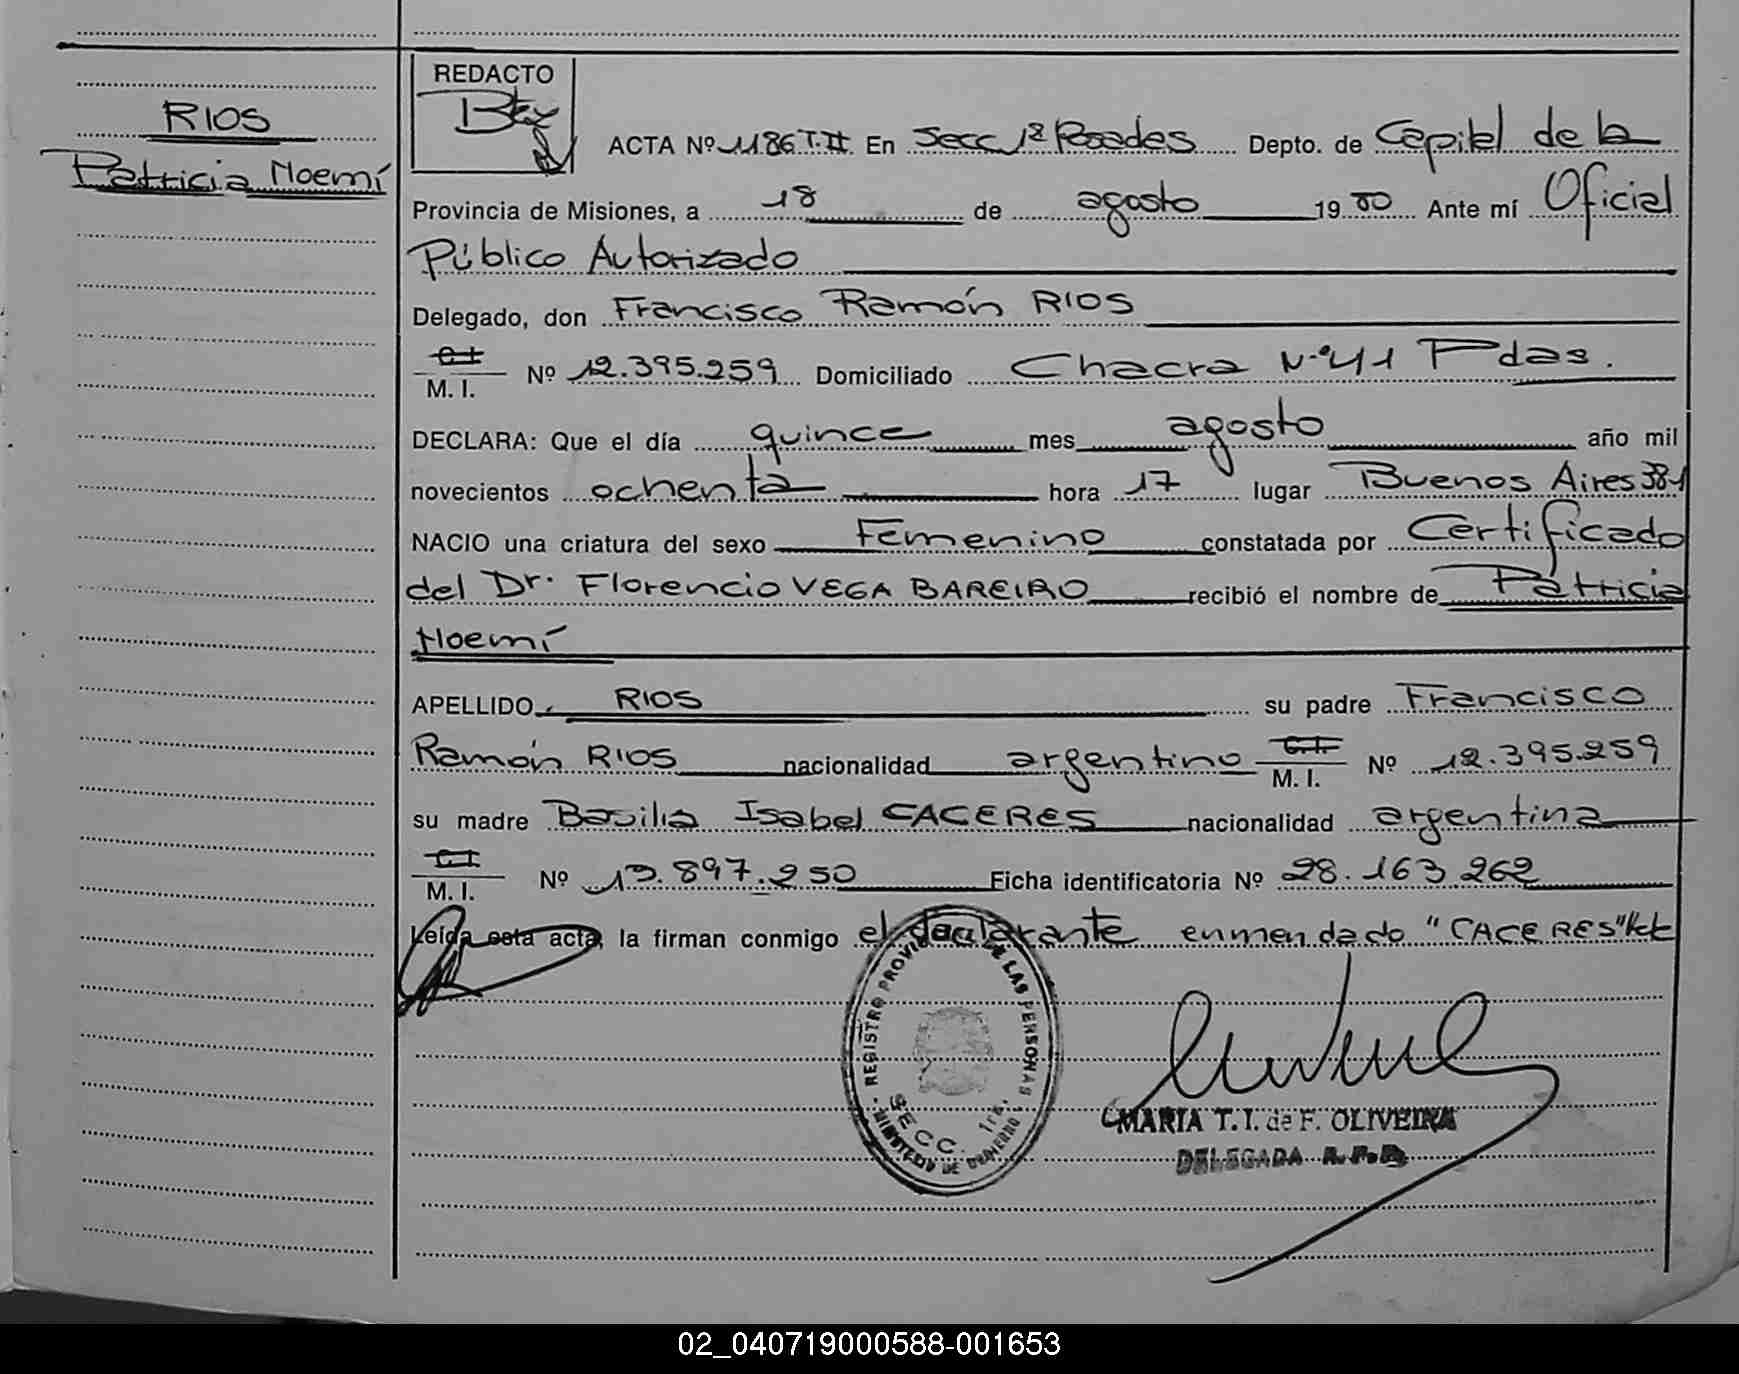 RIOS
Patricia Noemí
REDACTO
ACTA Nº 1186 T.II En Secc 1ª Posadas Depto. de Capital de la
Provincia de Misiones, a 18 de agosto 1980 Ante mí Oficial
Público Autorizado
Delegado, don Francisco Ramón RIOS
C.I.
M. I. Nº 12.395.259 Domiciliado Chacra Nº 41 Pdas.
DECLARA: Que el día quince mes agosto año mil
novecientos ochenta hora 17 lugar Buenos Aires 381
NACIO una criatura del sexo Femenino constatada por Certificado
del Dr. Florencio VEGA BAREIRO recibió el nombre de Patricia
Noemí
APELLIDO RIOS su padre Francisco
Ramón RIOS nacionalidad argentino C.I. M. I. Nº 12.395.259
su madre Basilia Isabel CACERES nacionalidad argentina
C.I.
M. I. Nº 13.897.250 Ficha identificatoria Nº 28.163.262
Leída esta acta, la firman conmigo el declarante enmendado "CACERES"
REGISTRO PROVINCIAL DE LAS PERSONAS
SECC. 1ra.
MINISTERIO DE GOBIERNO
MARIA T. I. de F. OLIVEIRA
DELEGADA R.P.P.
02_040719000588-001653